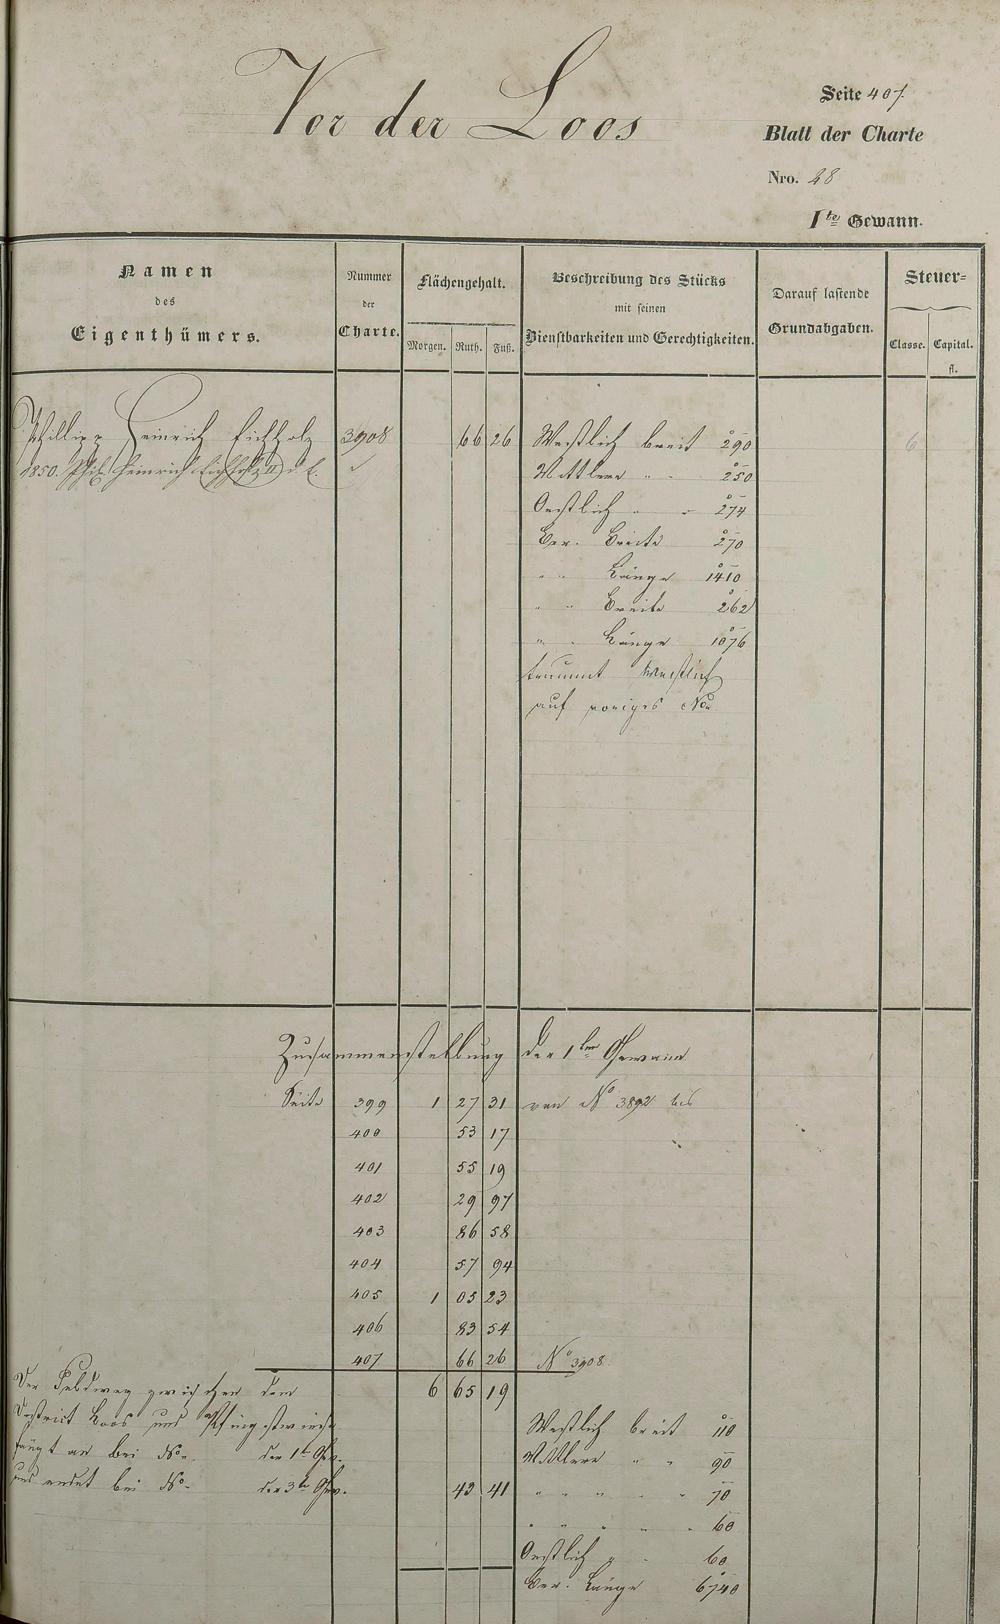 Vor der Loos
Seite 407.
Blatt der Charte
Nro. 28
1te Gewann.
Namen
des
Eigenthümers.
Nummer
der
Charte.
Flächengehalt.
Morgen. Ruth. Fuß.
Beschreibung des Stücks
mit seinen
Dienstbarkeiten und Gerechtigkeiten.
Darauf lastende
Grundabgaben.
Steuer=
Classe. Capital.
fl.
Phillipp Heinrich Eichholz 3908 66 26 Westlich breit 290 6
1850. Phil. Heinrich Eichholz II
Mittlere " " 250
Oestlich " " 274
Ber. Breite 270
" " Länge 1410
" " Breite 262
" " Länge 1076
Westlich
auf voriges No.
Zusammenstellung der 1ten Gewann
Seite 399 1 27 31 von No 3892 bis
400 53 17
401 55 19
402 29 97
403 86 58
404 57 94
405 1 05 23
406 83 54
407 66 26 No 3908
6 65 19
Der Feldweg zwischen dem
District Loos und Pfingstwiese Westlich breit 110
fängt an bei No. der 1te Gew. Mittlere " " 90
und endet bei No. der 3te Gew. 43 41 " " " " " 70
" " " " " 60
Oestlich " " 60
Ber. Länge 6740